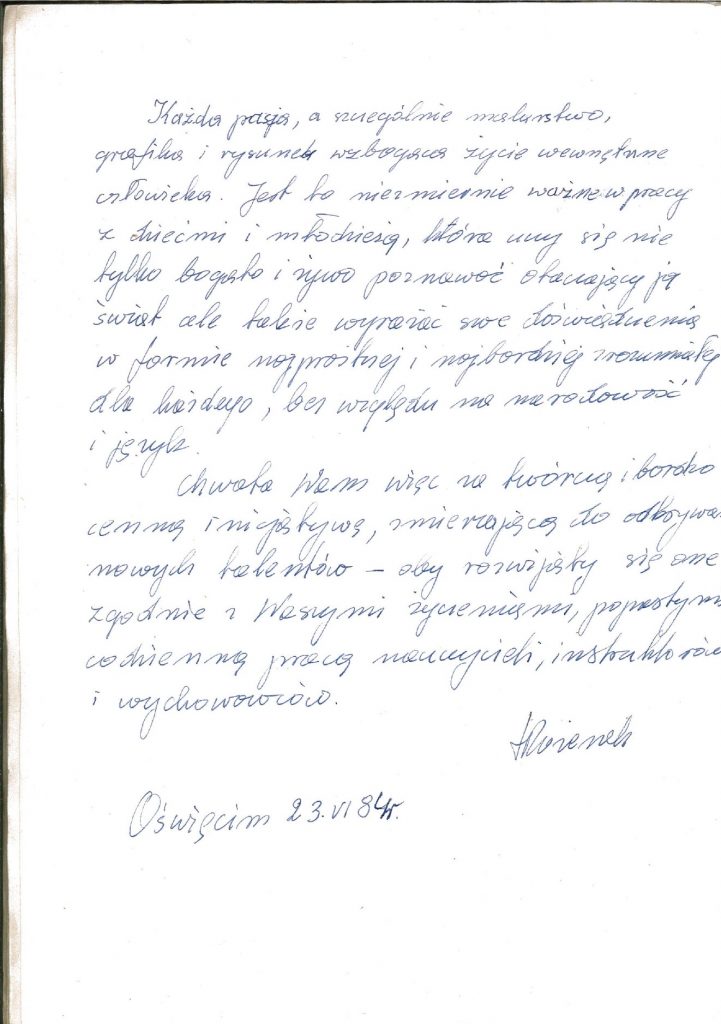 Każda pasja, a szczególnie malarstwo,
grafika i rysunek wzbogaca życie wewnętrzne
człowieka. Jest to niezmiernie ważne w pracy
z dziećmi i młodzieżą, która uczy się nie
tylko bogato i żywo poznawać otaczający ją
świat ale także wyrażać swe doświadczenia
w formie najprostszej i najbardziej zrozumiałej
dla każdego, bez względu na narodowość
i język.
Chwała Wam więc za twórczą i bardzo
cenną inicjatywę, zmierzającą do odkrywa
nowych talentów – aby rozwijały się one
zgodnie z Waszymi życzeniami, popartymi
codzienną pracą nauczycieli, instruktorów
i wychowawców.
Oświęcim 23.VI 84r.